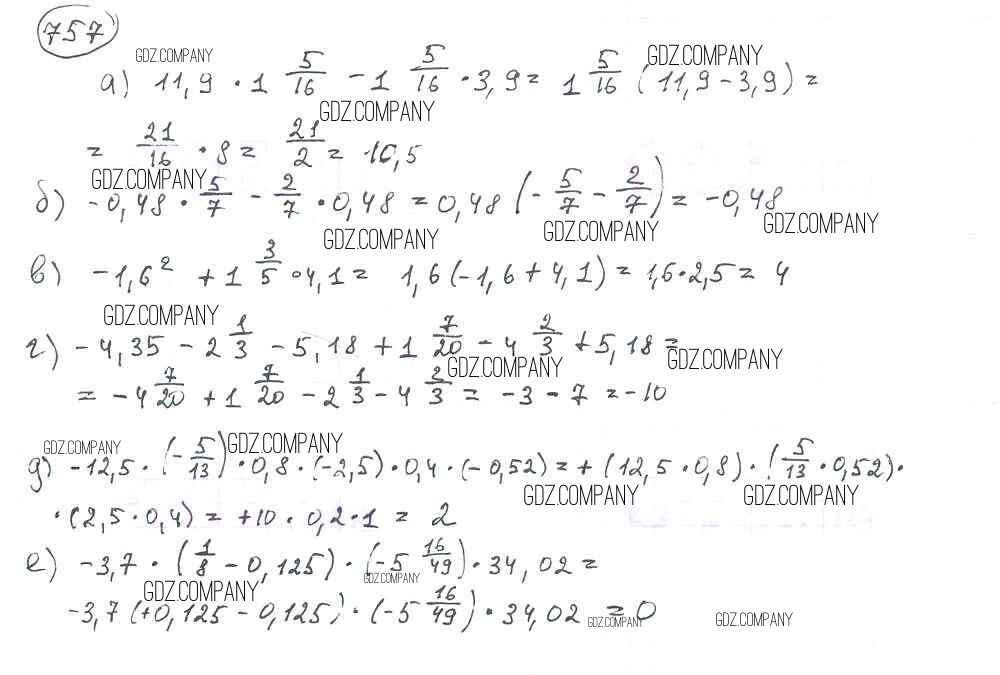 757
GDZ.COMPANY GDZ.COMPANY
а) 11,9 · 1 5/16 - 1 5/16 · 3,9 = 1 5/16 (11,9 - 3,9) =
GDZ.COMPANY
= 21/16 · 8 = 21/2 = 10,5
GDZ.COMPANY
б) -0,48 · 5/7 - 2/7 · 0,48 = 0,48 (-5/7 - 2/7) = -0,48
GDZ.COMPANY GDZ.COMPANY GDZ.COMPANY
в) -1,6² + 1 3/5 · 4,1 = 1,6 (-1,6 + 4,1) = 1,6 · 2,5 = 4
GDZ.COMPANY
г) -4,35 - 2 1/3 - 5,18 + 1 7/20 - 4 2/3 + 5,18 =
GDZ.COMPANY GDZ.COMPANY
= -4 7/20 + 1 7/20 - 2 1/3 - 4 2/3 = -3 - 7 = -10
GDZ.COMPANY GDZ.COMPANY
д) -12,5 · (-5/13) · 0,8 · (-2,5) · 0,4 · (-0,52) = + (12,5 · 0,8) · (5/13 · 0,52) ·
GDZ.COMPANY GDZ.COMPANY
· (2,5 · 0,4) = +10 · 0,2 · 1 = 2
е) -3,7 · (1/8 - 0,125) · (-5 16/49) · 34,02 =
GDZ.COMPANY GDZ.COMPANY
-3,7 (+0,125 - 0,125) · (-5 16/49) · 34,02 = 0
GDZ.COMPANY GDZ.COMPANY